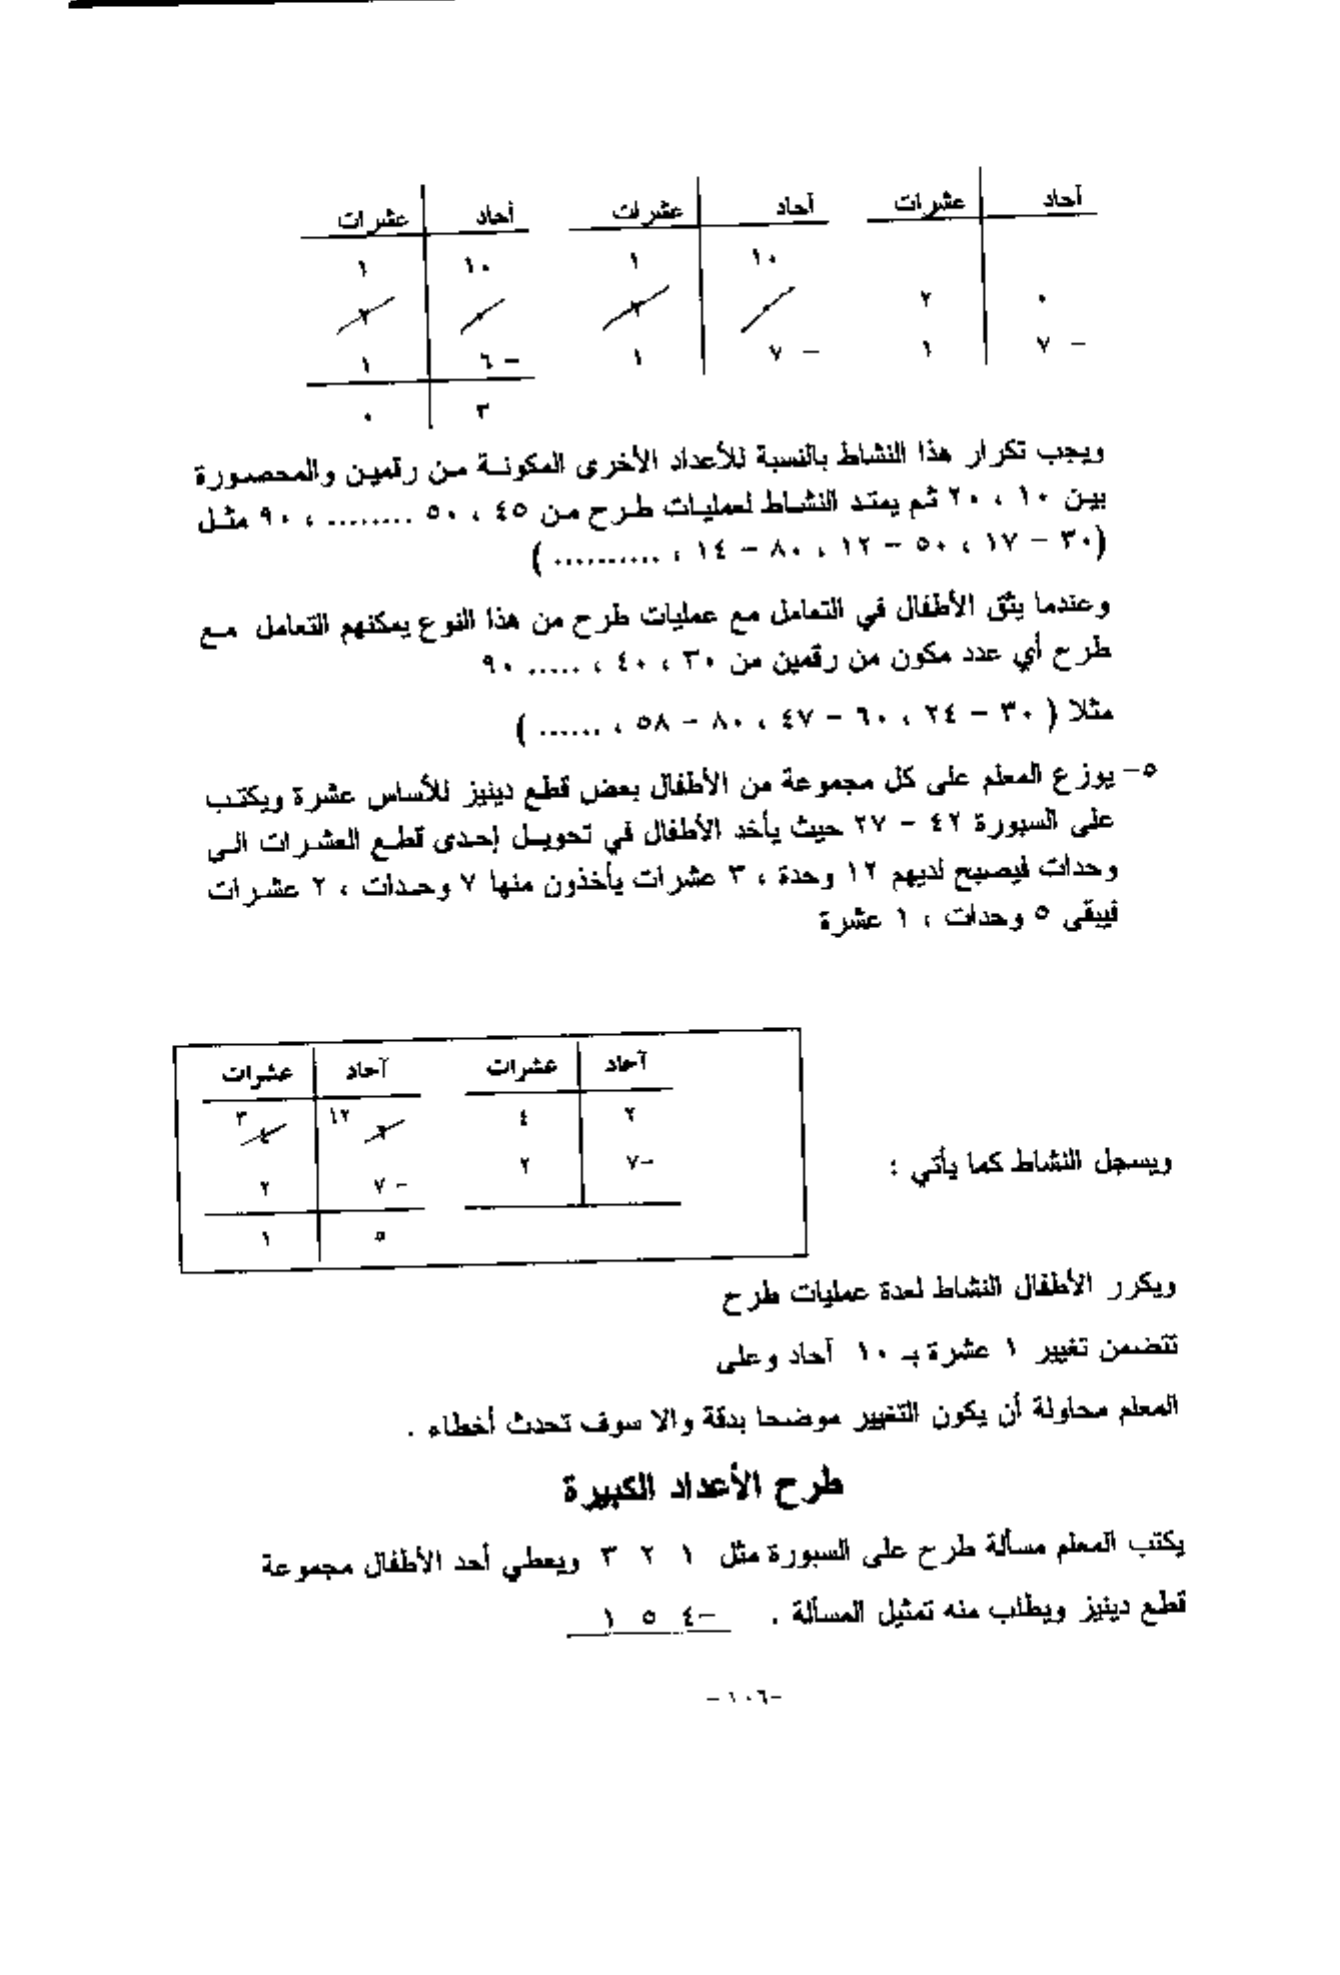 آحاد | عشرات     آحاد | عشرات     آحاد | عشرات
١٠ | ١     ١٠ | ١
٠ | ٢     ٠ | ٢     ٠ | ٢
٧ – | ١     ٧ – | ١     ٦ – | ١
٣ | ٠
ويجب تكرار هذا النشاط بالنسبة للأعداد الأخرى المكونة من رقمين والمحصورة
بين ١٠ ، ٢٠ ثم يمتد النشاط لعمليات طرح من ٤٥ ، ٥٠ ........ ، ٩٠ مثل
(٣٠ – ١٧ ، ٥٠ – ١٢ ، ٨٠ – ١٤ ، .......... )
وعندما يثق الأطفال في التعامل مع عمليات طرح من هذا النوع يمكنهم التعامل مع
طرح أي عدد مكون من رقمين من ٣٠ ، ٤٠ ، ..... ٩٠
مثلا ( ٣٠ – ٢٤ ، ٦٠ – ٤٧ ، ٨٠ – ٥٨ ، ...... )
٥– يوزع المعلم على كل مجموعة من الأطفال بعض قطع دينيز للأساس عشرة ويكتب
على السبورة ٤٢ – ٢٧ حيث يأخد الأطفال في تحويل إحدى قطع العشرات الى
وحدات فيصبح لديهم ١٢ وحدة ، ٣ عشرات يأخذون منها ٧ وحدات ، ٢ عشرات
فيبقى ٥ وحدات ، ١ عشرة
آحاد | عشرات     آحاد | عشرات
٢ | ٤     ٢ ١٢ | ٤ ٣
٧– | ٢     ٧ – | ٢
٥ | ١
ويسجل النشاط كما يأتي :
ويكرر الأطفال النشاط لعدة عمليات طرح
تتضمن تغيير ١ عشرة بـ ١٠ آحاد وعلى
المعلم محاولة أن يكون التغيير موضحا بدقة والا سوف تحدث أخطاء .
طرح الأعداد الكبيرة
يكتب المعلم مسألة طرح على السبورة مثل ١ ٢ ٣ ويعطي أحد الأطفال مجموعة
قطع دينيز ويطلب منه تمثيل المسألة . –٤ ٥ ١
–١٠٦–